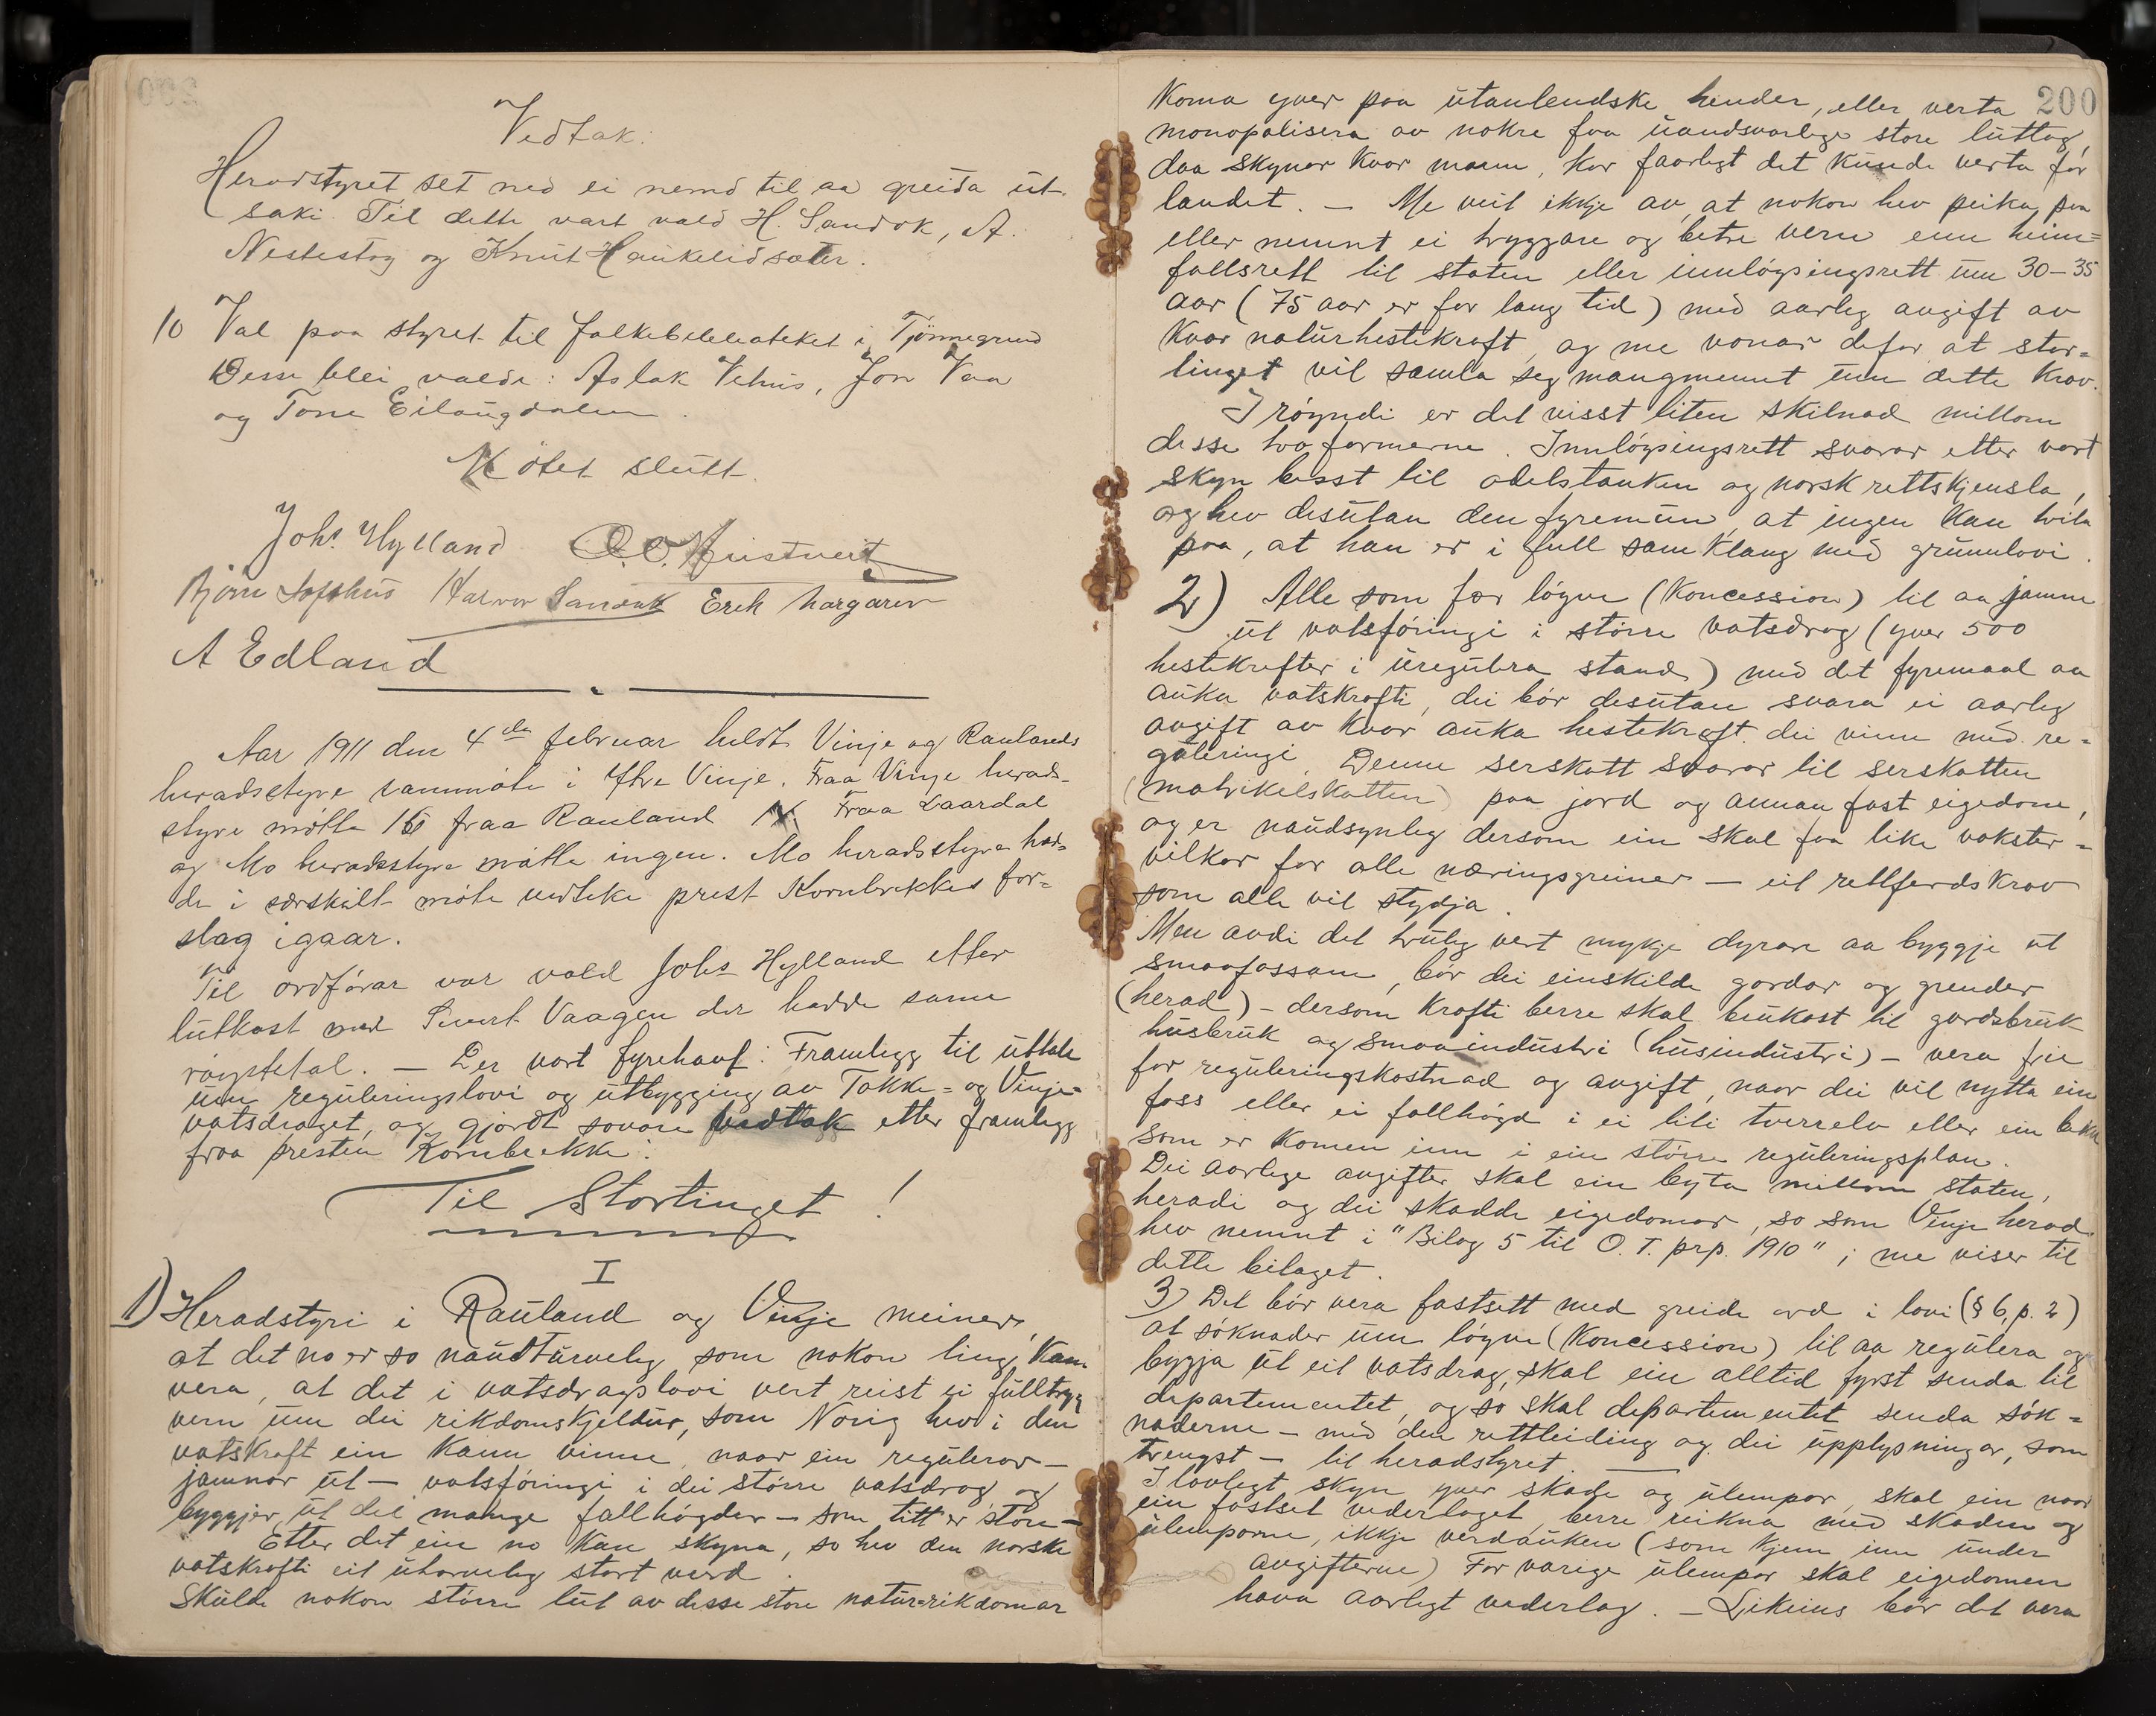 Vedtak:
Heradstyret set ned ei nemd til aa greida ut
saki. Til dette vart vald H. Sandok, A.
Nestestog og Knut Haukelidsæter.
10 Val paa styret til folkebiblioteket i Tjønnegrend
Desse blei valde: Aslak Vehus, Jon Vaa
og Tone Eilaugdalen.
Møtet slutt.
Johs. Hylland
Bjørn Lofthus Halvor Sandok Erik Norgaren
A Edland
Aar 1911 den 4de februar heldt Vinje og Raulands
heradsstyre sammøte i Øvre Vinje. Fraa Vinje herads-
styre møtte 16 fraa Rauland Fraa Laardal
og Mo heradsstyre møtte ingen. Mo heradsstyre had-
de i serskilt møte vedteke prest Kornbrekkes for-
slag igaar.
Til ordførar var vald Johs Hylland etter
lutkast med Sivert Vaagen der hadde same
røystetal. — Der vart fyrehavt: Framlegg til uttale
um reguleringslovi og utbygging av Tokke- og Vinje-
vatsdraget, og gjordt sovore vedtak etter framlegg
fraa presten Kornbrekke:
Til Stortinget!
I
1) Heradstyri i Rauland og Vinje meiner,
at det no er so naudturveleg som nokon ting kan
vera, at det i vatsdragslovi vert reist ei fulltrygg
vern um dei rikdomskjeldur, som Norig hev i den
vatskraft ein kann vinne, naar ein regulerar —
jamnar ut — vatsføringi i dei større vatsdrag og
byggjer ut dei mange fallhøgder — som titt er store —
Etter det ein no kan skyna, so hev den norske
vatskrafti eit utorveleg stort verd.
Skulde nokon større lut av desse store natur-rikdomar
200
koma yver paa utanlendske hender, eller verta
monopolisera av nokre faa uandsvarlege store luttag,
daa skynar kvar mann, kor faarlegt det kunde verta for
landet. — Me veit ikkje av, at nokon hev peika paa
eller nemnt ei tryggare og betre vern enn heim-
fallsrett til staten eller innløysingsrett um 30–35
aar (75 aar er for lang tid) med aarleg avgift av
kvar naturhestekraft, og me vonar defor at stor-
tinget vil samla seg mangment um dette krav.
I røyndi er det visst liten skilnad millom
desse two formerne. Innløysingsrett svarar etter vort
skyn best til odelstanken og norsk rettskjensla,
og hev desutan den fyremun, at ingen kan tvila
paa, at han er i full samklang med grunnlovi.
2) Alle som fær løyve (Koncession) til aa jamne
ut vatsføringi i større vatsdrag (yver 500
hestekrefter i uregulera stand) med det fyremaal aa
auka vatskrafti, dei bør desutan svara ei aarleg
avgift av kvar auka hestekraft dei vinn med re-
guleringi. Denne serskatt svarar til serskatten
(matrikelskatten) paa jord og annan fast eigedom,
og er naudsynleg dersom ein skal faa like vokster-
vilkor for alle næringsgreiner — eit rettferdskrav
som alle vil stydja.
Men avdi det truleg vert mykje dyrare aa byggje ut
smaafossane, bør dei einskilde gardar og grender
(herad) – dersom krafti berre skal brukast til gardsbruk
husbruk og smaaindustri (husindustri) – vera frie
for reguleringskostnad og avgift, naar dei vil nytta ein
foss eller ei fallhøgd i ei liti tverrelv eller ein bekk
som er komen inn i ein større reguleringsplan.
Dei aarlege avgifter skal ein byta millom staten,
heradi og dei skadde eigedomar, so som Vinje herad
hev nemnt i "Bilag 5 til O. T. prp. 1910"; me viser til
dette bilaget.
3) Det bør vera fastsett med greide ord i lovi (§ 6, p. 2)
at søknader um løyve (Koncession) til aa regulera og
byggja ut eit vatsdrag, skal ein alltid fyrst senda til
departementet, og so skal departementet senda søk-
naderne – med den rettleiding og dei upplysningar, som
trengst – til heradstyret.
I lovlegt skyn yver skade og ulempor, skal ein naar
ein fastset vederlaget, berre reikna med skaden og
ulemporne, ikkje verdauken (som kjem inn under
avgifterne) For varige ulempor skal eigedomen
hava aarlegt vederlag. — Likeins bør det vera